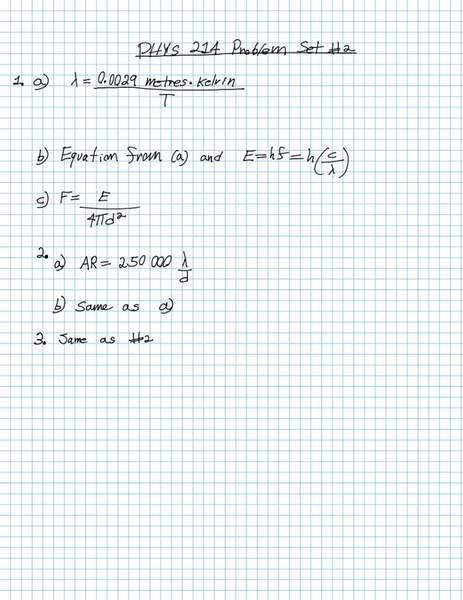 PHYS 214 Problem Set #2
1. a) λ = 0.0029 metres · Kelvin / T
b) Equation from (a) and E=hf=h(c/λ)
c) F= E / 4πd²
2. a) AR = 250 000 λ/d
b) Same as a)
3. Same as #2